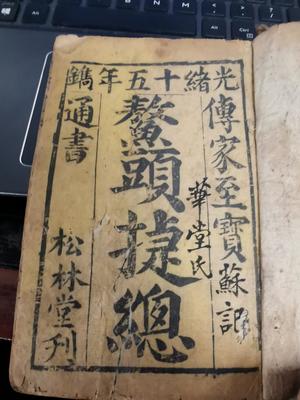 光緒十五年鐫
傳家至寶蘇
華堂氏
鰲頭捷總
通書
松林堂刊